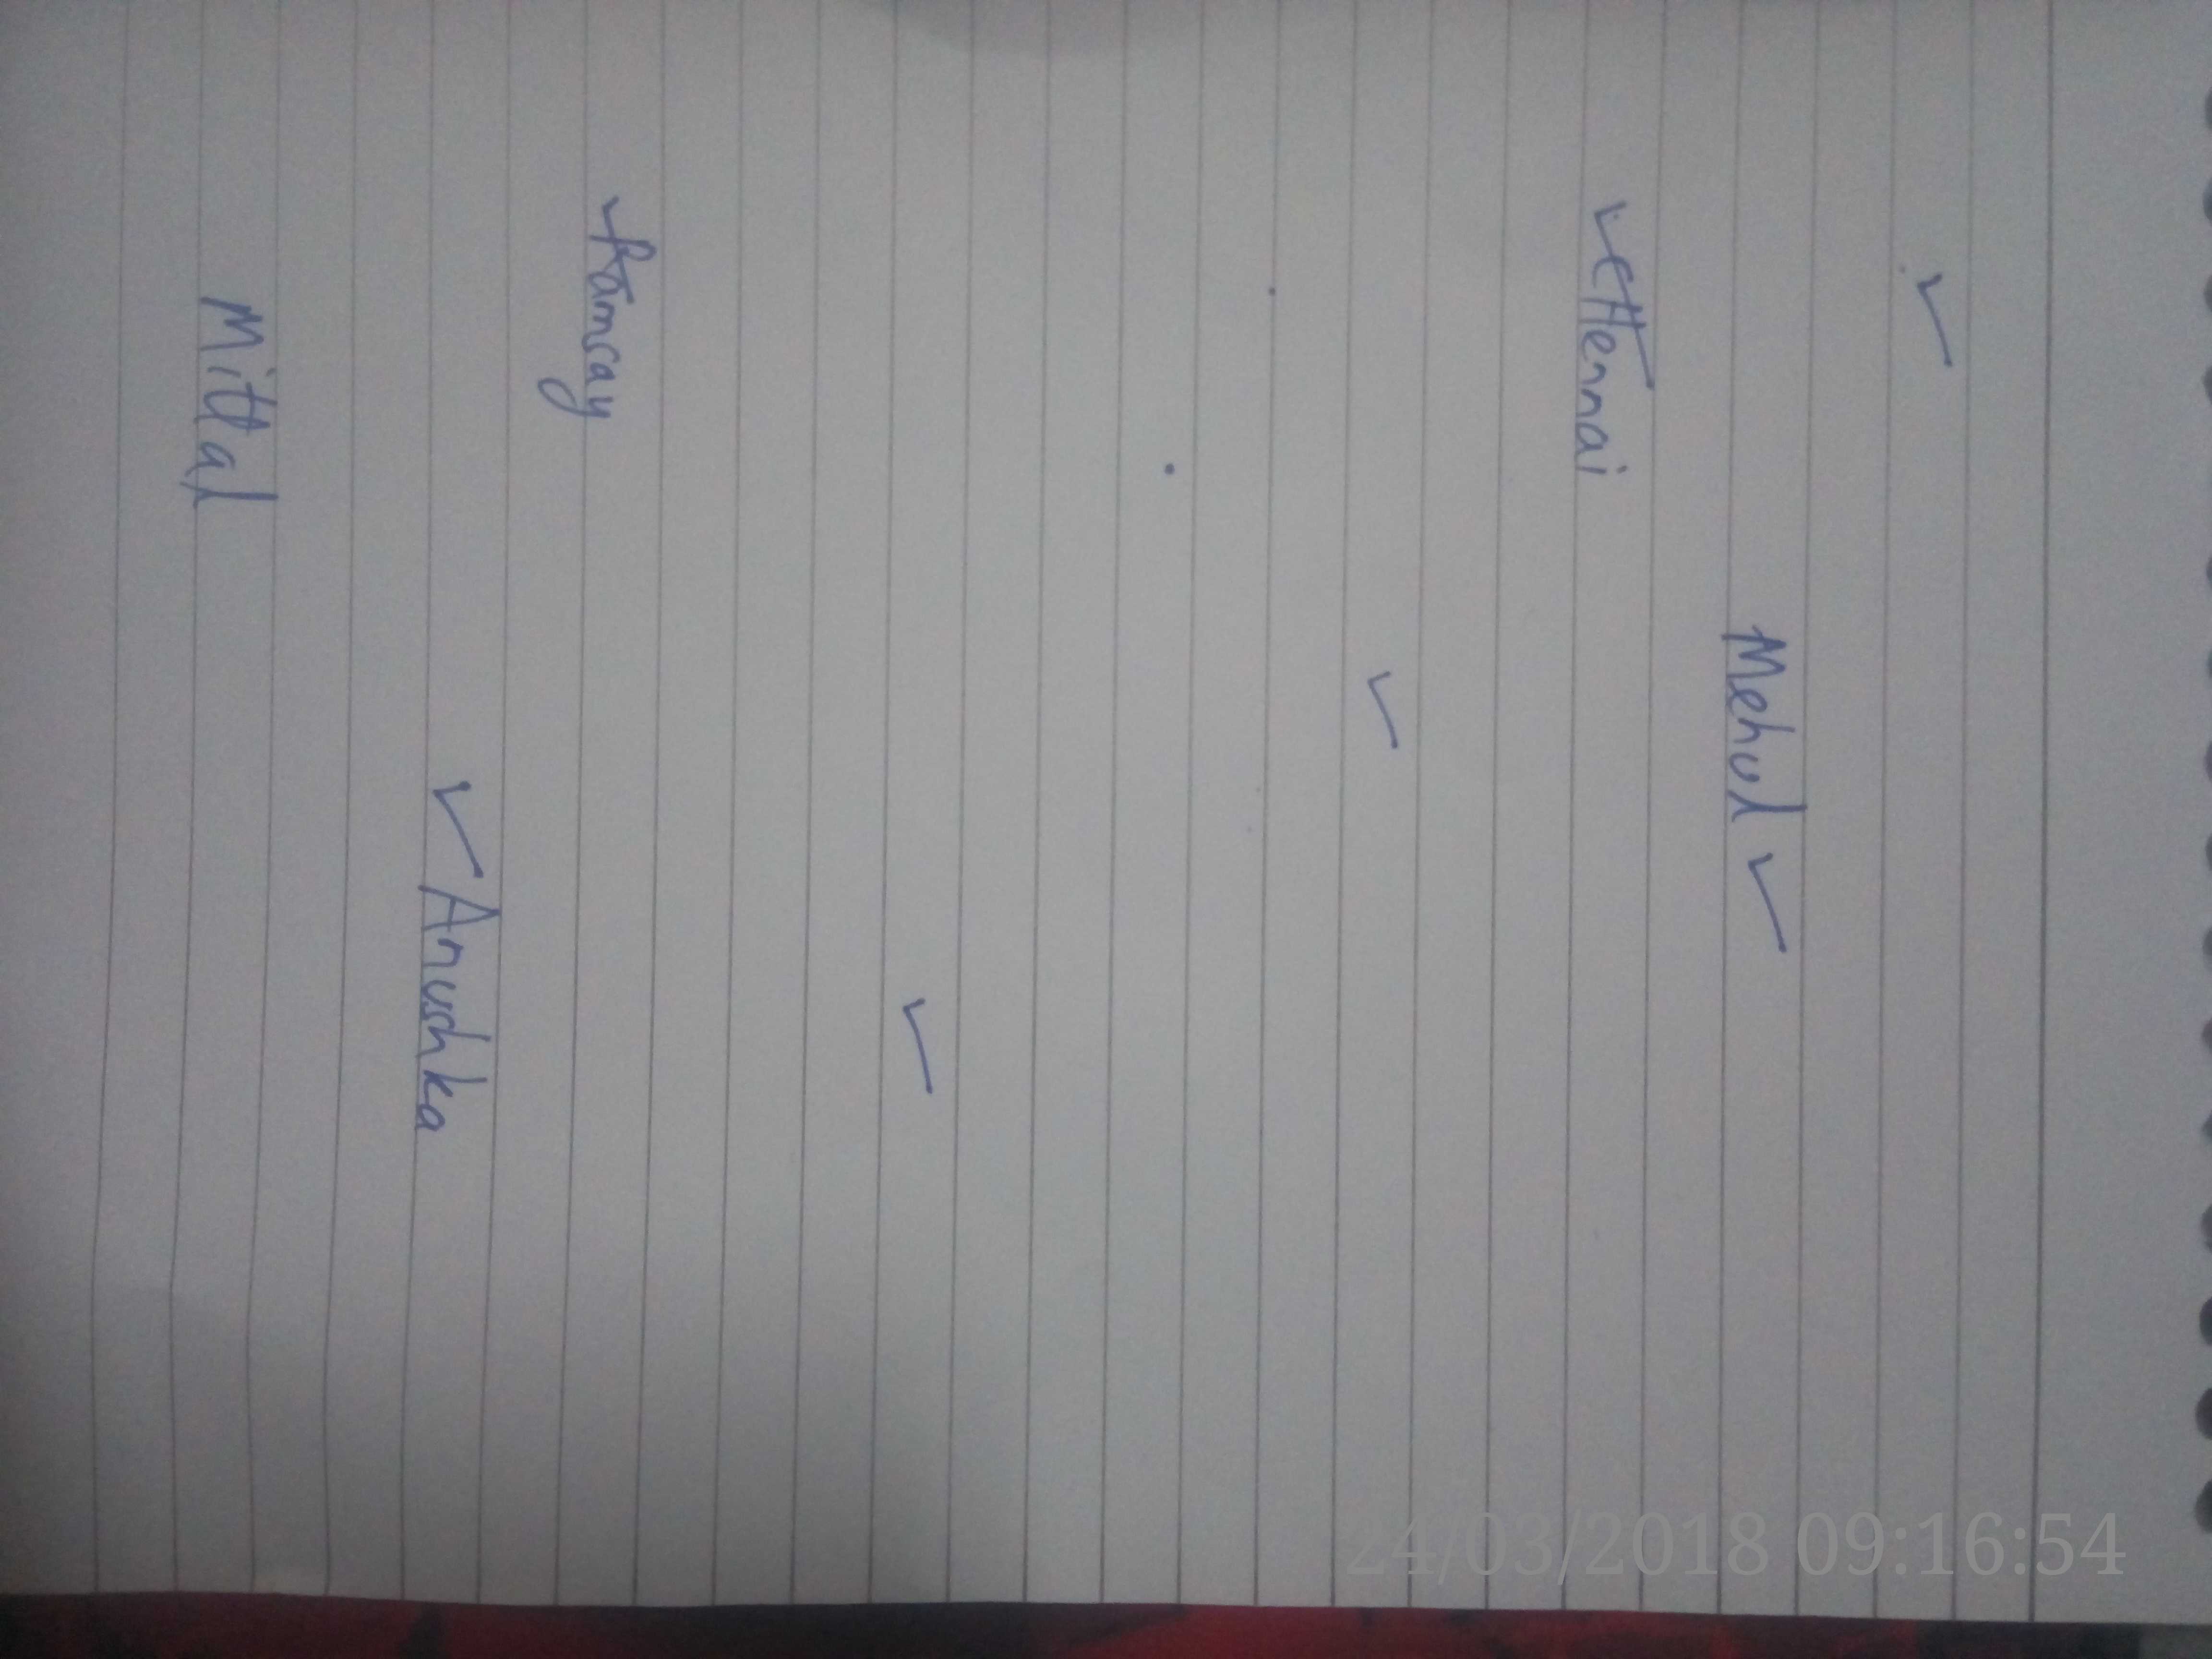 ✓
Mehul ✓
✓ CHennai
✓
✓
✓ Ramsay
✓ Anushka
Mittal
24/03/2018 09:16:54